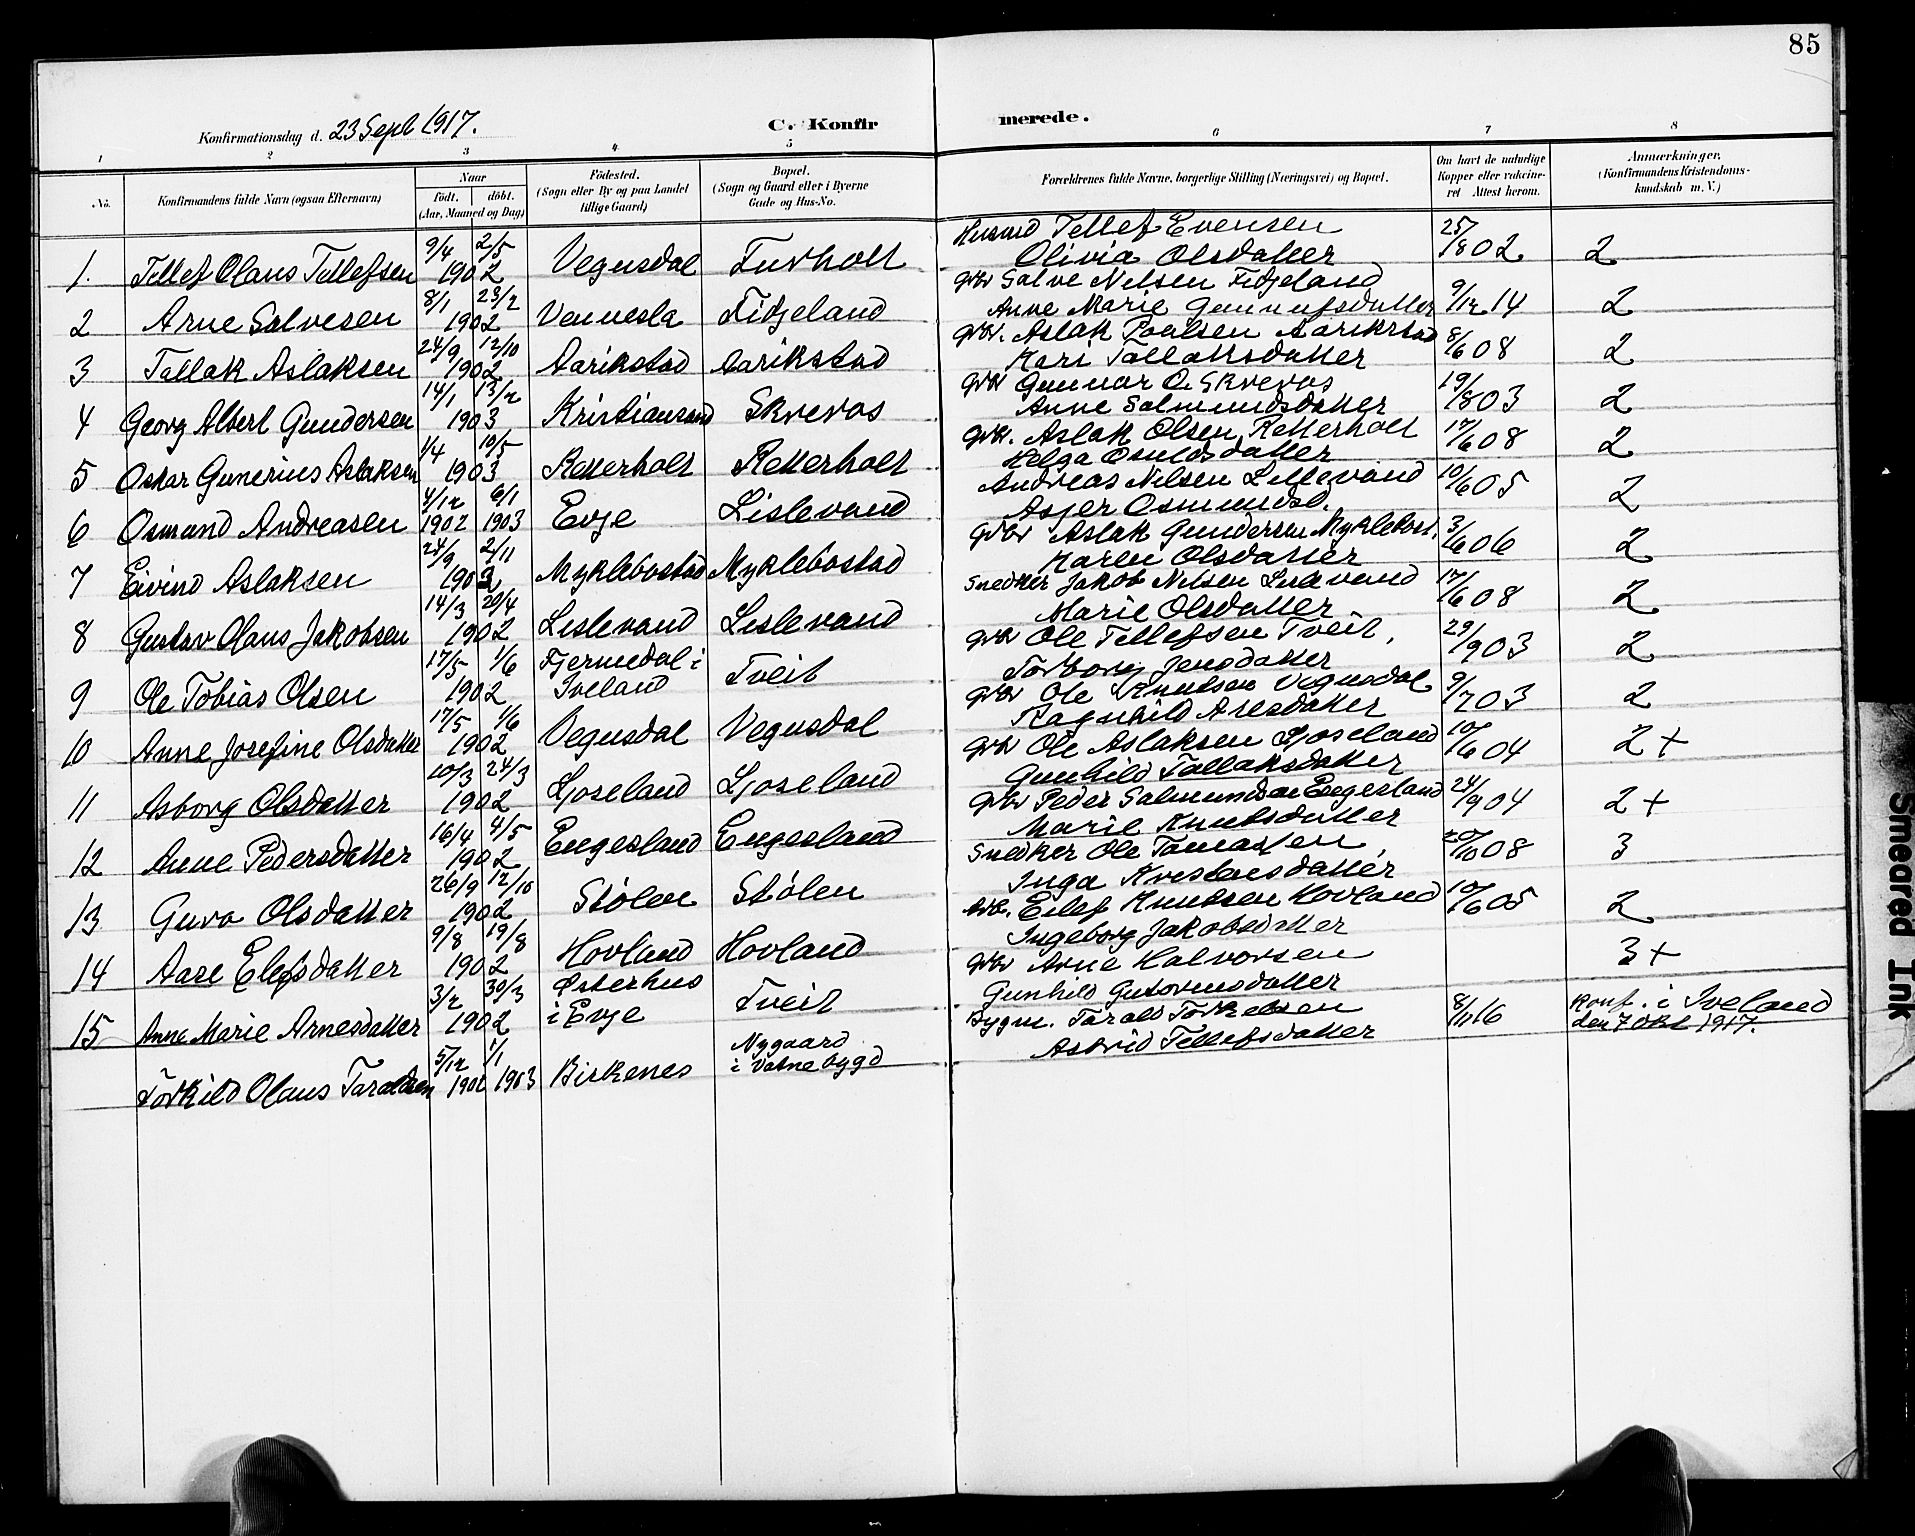 85
Konfirmationsdag d. 23 Sept 1917. C. Konfir merede.
1 2 3 4 5 6 7 8
No. Konfirmandens fulde Navn (ogsaa Efternavn) Naar födt. döbt. (Aar, Maaned og Dag) Födested. (Sogn eller By og paa Landet tillige Gaard) Bopæl. (Sogn og Gaard eller i Byerne Gade og Hus-No. Forældrenes fulde Navne, borgerlige Stilling (Næringsvei) og Bopæl. Om havt de naturlige Kopper eller vaccineret. Attest herom. Anmærkninger. (Konfirmandens Kristendomskundskab m. V.)
1. Tellef Olaus Tellefsen 9/4 2/5 1902 Vegusdal Furholt Husmd Tellef Evensen Olivia Olsdatter 25/8 02 2
2 Arne Salvesen 8/1 23/2 1902 Vennesla Fidjeland Gbr Salve Nilsen Fidjeland Anne Marie Gunnufsdatter 9/12 14 2
3 Tallak Aslaksen 24/9 12/10 1902 Aarikstad Aarikstad Gbr. Aslak Paalsen Aarikstad Kari Tallaksdatter 8/6 08 2
4 Georg Albert Gundersen 14/1 15/2 1903 Kristiansand Skrevas Gbr Gunnar O. Skrevas Anne Salmundsdatter 19/8 03 2
5 Oskar Gunerius Aslaksen 1/4 10/5 1903 Retterholt Retterholt Gbr. Aslak Olsen Retterholt Helga Osuldsdatter 17/6 08 2
6 Osmund Andreasen 4/12 1902 6/1 1903 Evje Lislevand Andreas Nilsen Lislevand Asjer Osmundsd. 10/6 05 2
7 Eivind Aslaksen 24/9 2/11 1902 Myklebostad Myklebostad Gbr Aslak Gundersen Myklebost. Karen Olsdatter 3/6 06 2
8 Gustav Olaus Jakobsen 14/3 20/4 1902 Lislevand Lislevand Snedker Jakob Nilsen Lislevand Marie Olsdatter 17/6 08 2
9 Ole Tobias Olsen 17/5 1/6 1902 Fjermedal i Iveland Tveit Gbr Ole Tellefsen Tveit, Torborg Jensdatter 29/9 03 2
10 Anne Josefine Olsdatter 17/5 1/6 1902 Vegusdal Vegusdal Gbr Ole Knutsen Vegusdal Ragnhild Aresdatter 9/7 03 2
11 Asborg Olsdatter 10/3 24/3 1902 Ljoseland Ljoseland Gbr Ole Aslaksen Ljoseland Gunhild Tallaksdatter 10/6 04 2+
12 Anne Pedersdatter 16/4 4/5 1902 Engesland Engesland Gbr Peder Salmundsen Engesland Marie Knutsdatter 24/9 04 2+
13 Guro Olsdatter 26/9 12/10 1902 Stølen Stølen Snedker Ole Tomassen, Inga Kristensdatter 20/10 08 3
14 Aase Elefsdatter 9/8 19/8 1902 Hovland Hovland Gbr. Eilef Knutsen Hovland Ingeborg Jakobsdatter 10/6 05 2
15 Anne Marie Arnesdatter 3/2 30/3 1902 Østerhus i Evje Tveit Gbr Arne Halvorsen Gunhild Gutormsdatter 3+
Torkild Olaus Taraldsen 5/12 1902 1/1 1903 Birkenes Nygaard i Vatnebygd Bygm. Tarald Torkelsen Astrid Tellefsdatter 8/11 16 Konf. i Iveland den 7 Okt 1917.
Smeared Ink